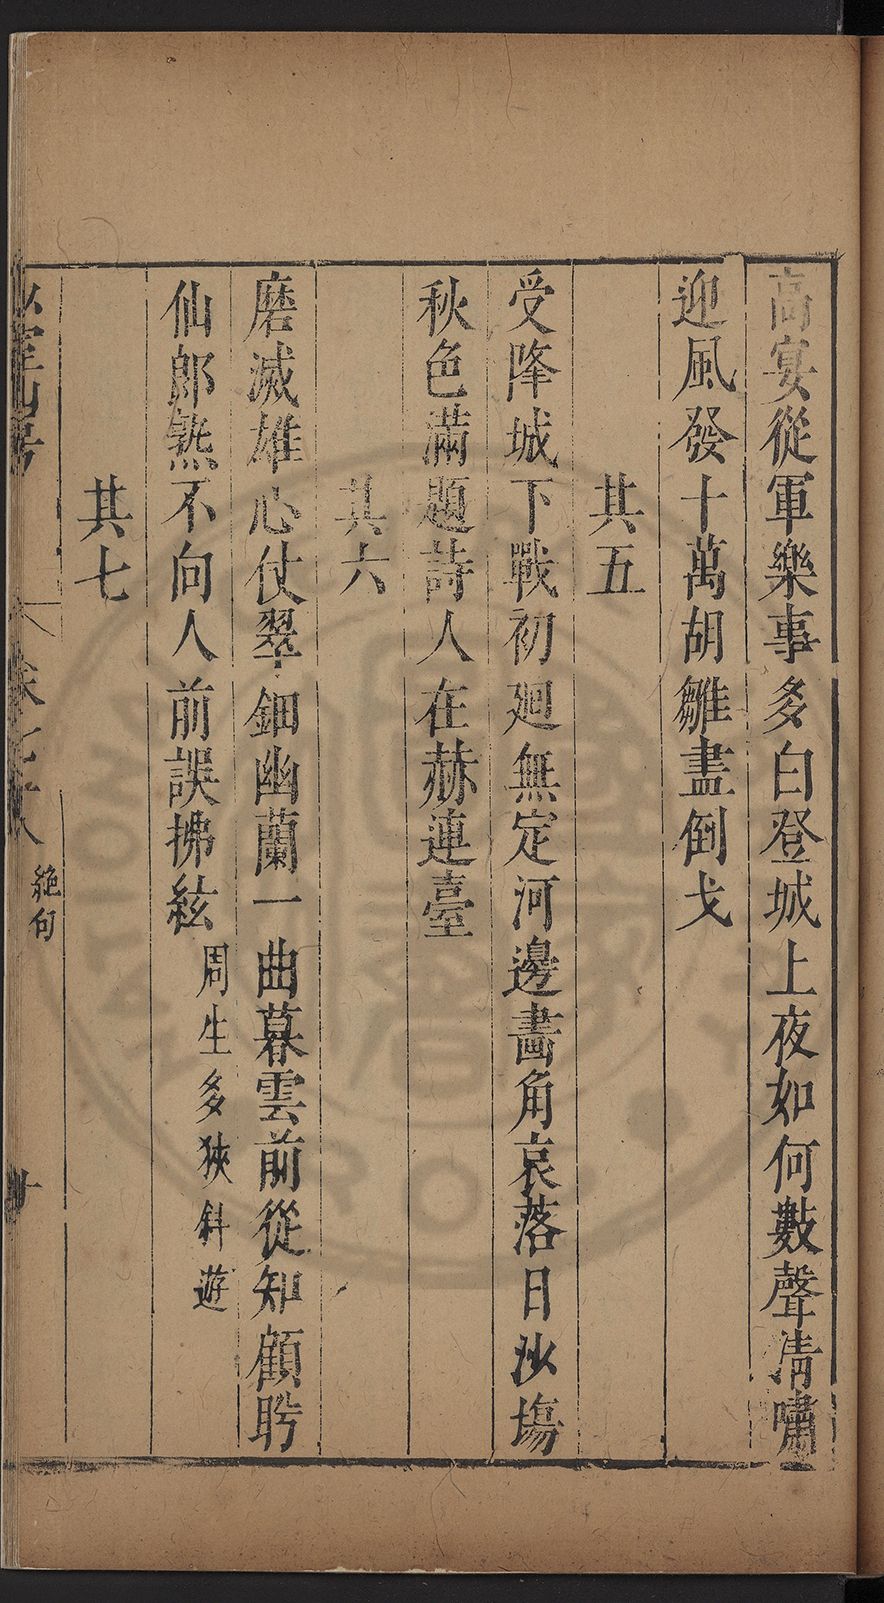 高宴從軍樂事多白登城上夜如何數聲清嘯
迎風發十萬胡雛盡倒戈
其五
受降城下戰初廻無定河邊畫角哀落日沙塲
秋色滿題詩人在赫連臺
其六
磨滅雄心仗翠鈿幽蘭一曲暮雲前從知顧盻
仙郎熟不向人前誤拂絃周生多狹斜遊
其七
絶句